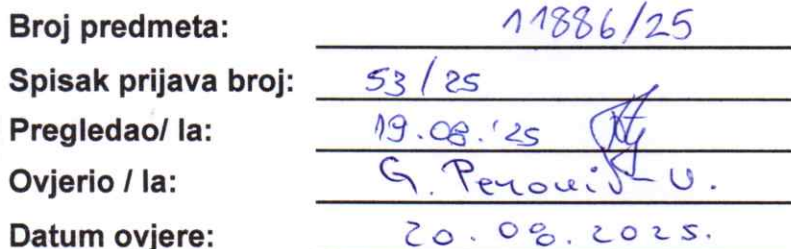 Broj predmeta: 11886/25
Spisak prijava broj: 53/25
Pregledao/ la: 19.08.'25
Ovjerio / la: G. Perović - U.
Datum ovjere: 20.08.2025.